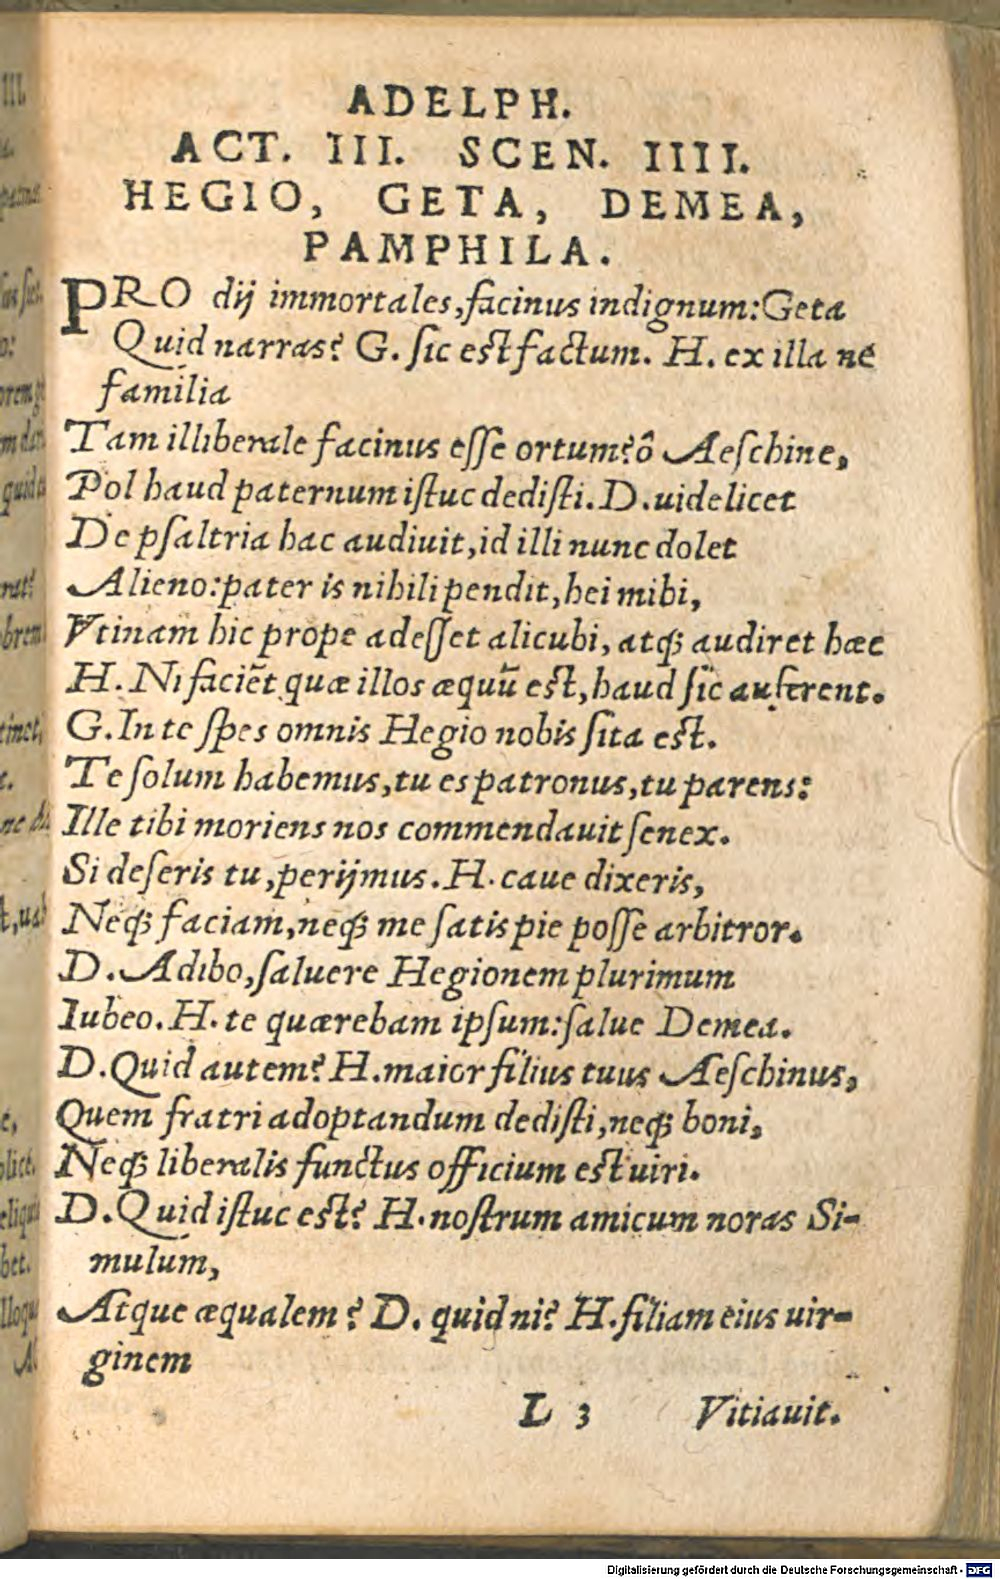 ADELPH.
ACT. III. SCEN. IIII.
HEGIO, GETA, DEMEA,
PAMPHILA.
PRO dij immortales, facinus indignum: Geta
Quid narras? G. ſic eſt factum. H. ex illa né
familia
Tam illiberale facinus eſſe ortum? ô Aeſchine,
Pol haud paternum iſtuc dediſti. D. uidelicet
De pſaltria hac audiuit, id illi nunc dolet
Alieno: pater is nihili pendit, hei mihi,
Vtinam hic prope adeſſet alicubi, atq; audiret hæc
H. Ni faciẽt quæ illos æquũ eſt, haud ſic auferent.
G. In te ſpes omnis Hegio nobis ſita eſt.
Te ſolum habemus, tu es patronus, tu parens:
Ille tibi moriens nos commendauit ſenex.
Si deſeris tu, perijmus. H. caue dixeris,
Neq; faciam, neq; me ſatis pie poſſe arbitror.
D. Adibo, ſaluere Hegionem plurimum
Iubeo. H. te quærebam ipſum: ſalue Demea.
D. Quid autem? H. maior filius tuus Aeſchinus,
Quem fratri adoptandum dediſti, neq; boni,
Neq; liberalis functus officium eſt uiri.
D. Quid iſtuc eſt? H. noſtrum amicum noras Si-
mulum,
Atque æqualem? D. quid ni? H. filiam eius uir-
ginem
L 3 Vitiauit.
Digitalisierung gefördert durch die Deutsche Forschungsgemeinschaft - DFG